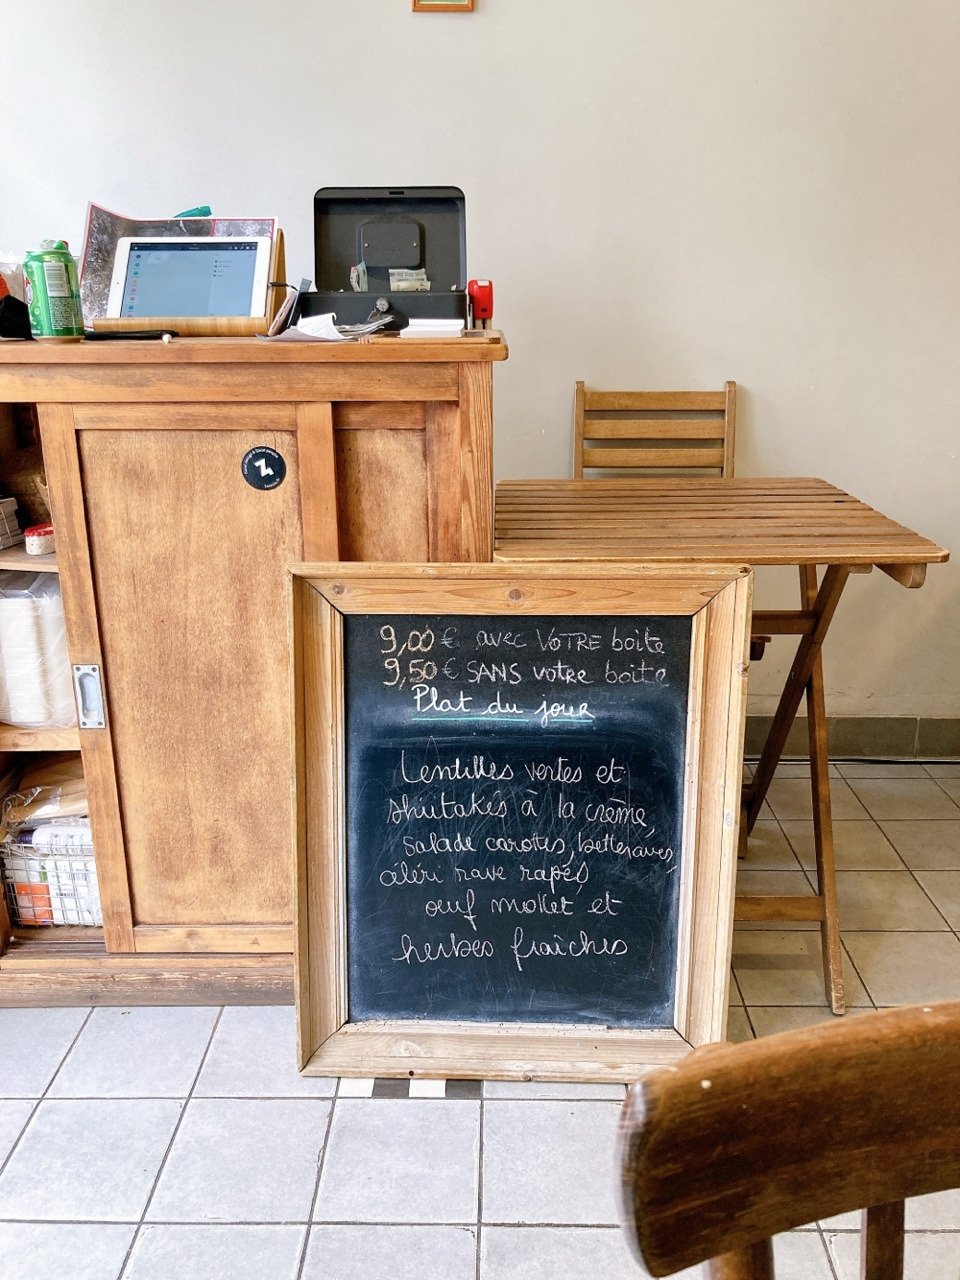 9,00 € avec VOTRE boite
9,50 € SANS votre boite
Plat du jour
Lentilles vertes et
shiitakés à la crème,
salade carottes, betteraves,
céleri rave rapés
œuf mollet et
herbes fraîches